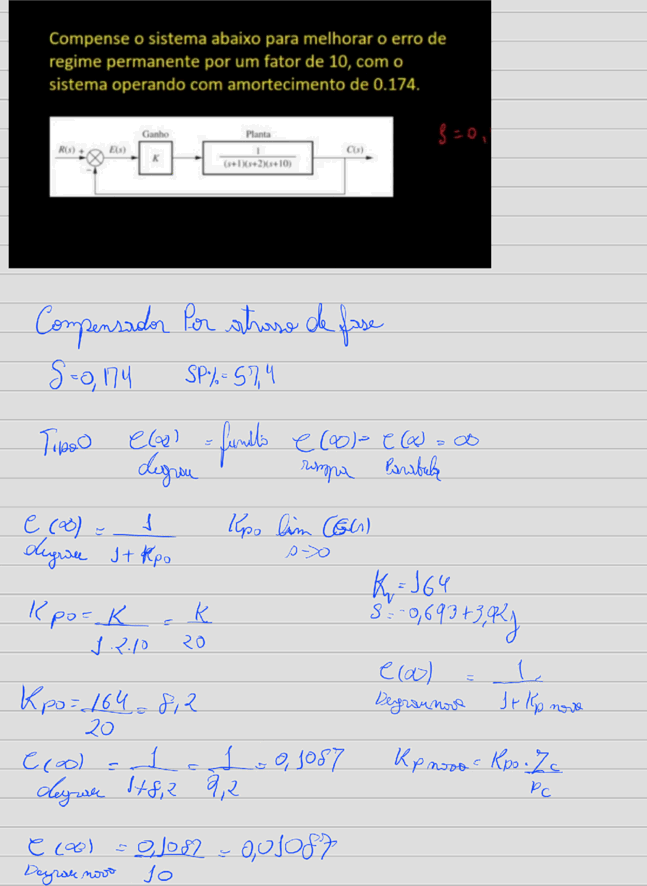 Compense o sistema abaixo para melhorar o erro de
regime permanente por um fator de 10, com o
sistema operando com amortecimento de 0.174.
ξ = 0,
Ganho Planta
R(s) + E(s) K 1/((s+1)(s+2)(s+10)) C(s)
−
Compensador Por atraso de fase
ξ = 0,174 SP% = 57,4
Tipo 0 e(∞) degrau = finito e(∞) rampa = e(∞) Parabola = ∞
e(∞) degrau = 1/(1 + Kpo) Kpo lim G(s) s->0
Kpo = K/(1.2.10) = K/20
K = 164
S = -0,693 + 3,92j
Kpo = 164/20 = 8,2
e(∞) Degrau novo = 1/(1 + Kp novo)
e(∞) degrau = 1/(1+8,2) = 1/9,2 = 0,1087
Kp novo = Kpo . Zc/pc
e(∞) Degrau novo = 0,1087/10 = 0,01087